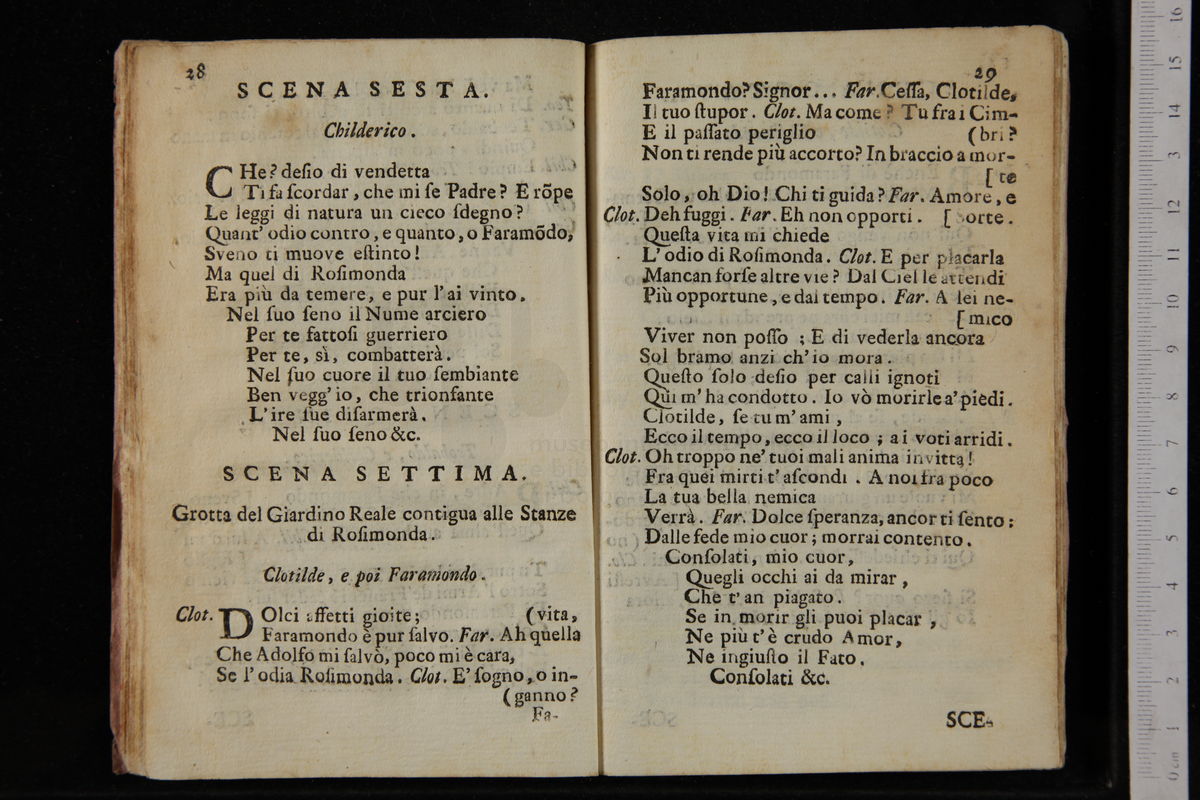 28
SCENA SESTA.
Childerico.
CHe? deſio di vendetta
Ti fa ſcordar, che mi ſe Padre? E rõpe
Le leggi di natura un cieco ſdegno?
Quant' odio contro, e quanto, o Faramõdo,
Sveno ti muove eſtinto!
Ma quel di Roſimonda
Era più da temere, e pur l'ai vinto.
Nel ſuo ſeno il Nume arciero
Per te fattoſi guerriero
Per te, sì, combatterà.
Nel ſuo cuore il tuo ſembiante
Ben vegg' io, che trionfante
L' ire ſue diſarmerà.
Nel ſuo ſeno &c.
SCENA SETTIMA.
Grotta del Giardino Reale contigua alle Stanze
di Roſimonda.
Clotilde, e poi Faramondo.
Clot. DOlci affetti gioite; (vita,
Faramondo è pur ſalvo. Far. Ah quella
Che Adolfo mi ſalvò, poco mi è cara,
Se l' odia Roſimonda. Clot. E' ſogno, o in-
(ganno?
Fa-
29
Faramondo? Signor... Far. Ceſſa, Clotilde,
Il tuo ſtupor. Clot. Ma come? Tu fra i Cim-
E il paſſato periglio (bri?
Non ti rende più accorto? In braccio a mor-
[te
Solo, oh Dio! Chi ti guida? Far. Amore, e
Clot. Deh fuggi. Far. Eh non opporti. [sorte.
Queſta vita mi chiede
L' odio di Roſimonda. Clot. E per placarla
Mancan forſe altre vie? Dal Ciel le attendi
Più opportune, e dal tempo. Far. A lei ne-
[mico
Viver non poſſo; E di vederla ancora
Sol bramo anzi ch' io mora.
Queſto ſolo deſio per calli ignoti
Qui m' ha condotto. Io vò morirle a' piedi.
Clotilde, ſe tu m' ami,
Ecco il tempo, ecco il loco; a i voti arridi.
Clot. Oh troppo ne' tuoi mali anima invitta!
Fra quei mirti t' aſcondi. A noi fra poco
La tua bella nemica
Verrà. Far. Dolce ſperanza, ancor ti ſento;
Dalle fede mio cuor; morrai contento.
Conſolati, mio cuor,
Quegli occhi ai da mirar,
Che t' an piagato.
Se in morir gli puoi placar,
Ne più t' è crudo Amor,
Ne ingiuſto il Fato.
Conſolati &c.
SCE-
0 cm 1 2 3 4 5 6 7 8 9 10 11 12 13 14 15 16